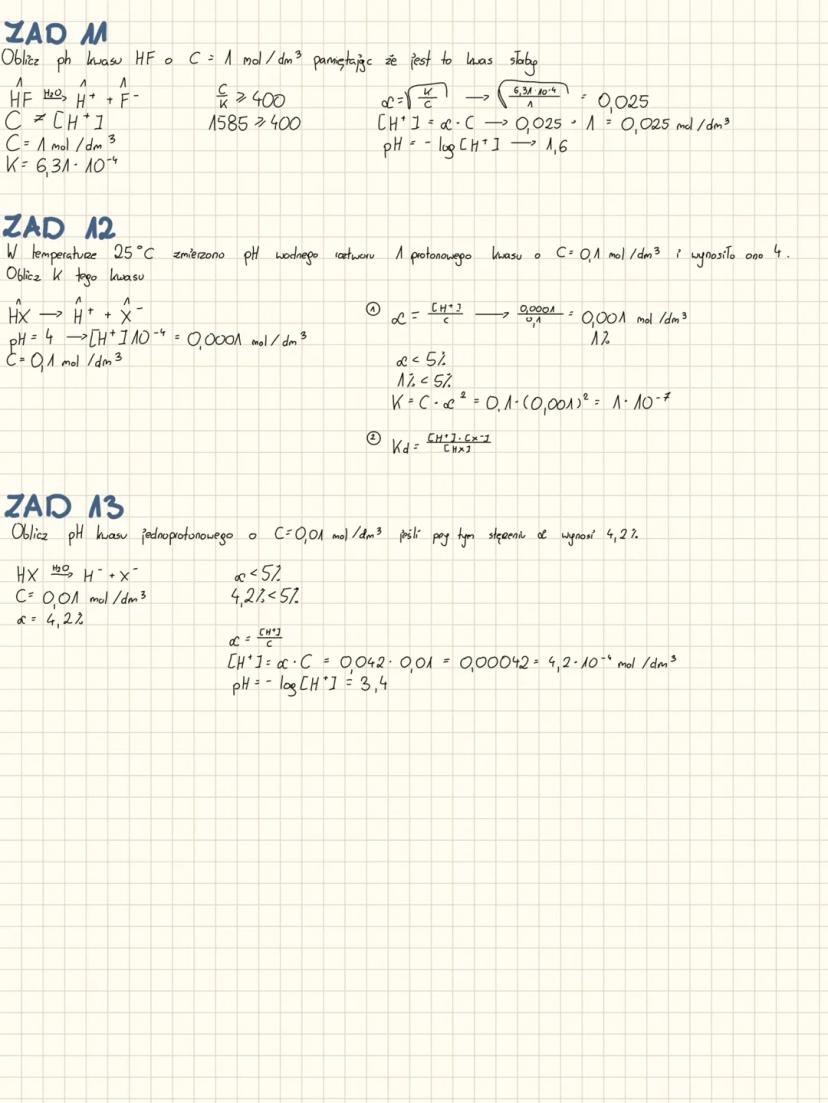 ZAD 11
Oblicz ph kwasu HF o C = 1 mol/dm³ pamiętając że jest to kwas słaby
1 1 1
HF H₂O→ H⁺ + F⁻
C ≠ [H⁺]
C = 1 mol/dm³
K = 6,31 · 10⁻⁴
C/K ≥ 400
1585 ≥ 400
α = √(K/C) → √(6,31 · 10⁻⁴/1) = 0,025
[H⁺] = α · C → 0,025 · 1 = 0,025 mol/dm³
pH = - log [H⁺] → 1,6
ZAD 12
W temperaturze 25°C zmierzono pH wodnego roztworu 1 protonowego kwasu o C = 0,1 mol/dm³ i wynosiło ono 4.
Oblicz K tego kwasu
1 1 1
HX → H⁺ + X⁻
pH = 4 → [H⁺] 10⁻⁴ = 0,0001 mol/dm³
C = 0,1 mol/dm³
① α = [H⁺]/C → 0,0001/0,1 = 0,001 mol/dm³
1%
α < 5%
1% < 5%
K = C · α² = 0,1 · (0,001)² = 1 · 10⁻⁷
② Kd = [H⁺] · [X⁻]/[HX]
ZAD 13
Oblicz pH kwasu jednoprotonowego o C = 0,01 mol/dm³ jeśli przy tym stężeniu α wynosi 4,2%
HX H₂O→ H⁻ + X⁻
C = 0,01 mol/dm³
α = 4,2%
α < 5%
4,2% < 5%
α = [H⁺]/C
[H⁺] = α · C = 0,042 · 0,01 = 0,00042 = 4,2 · 10⁻⁴ mol/dm³
pH = - log [H⁺] = 3,4